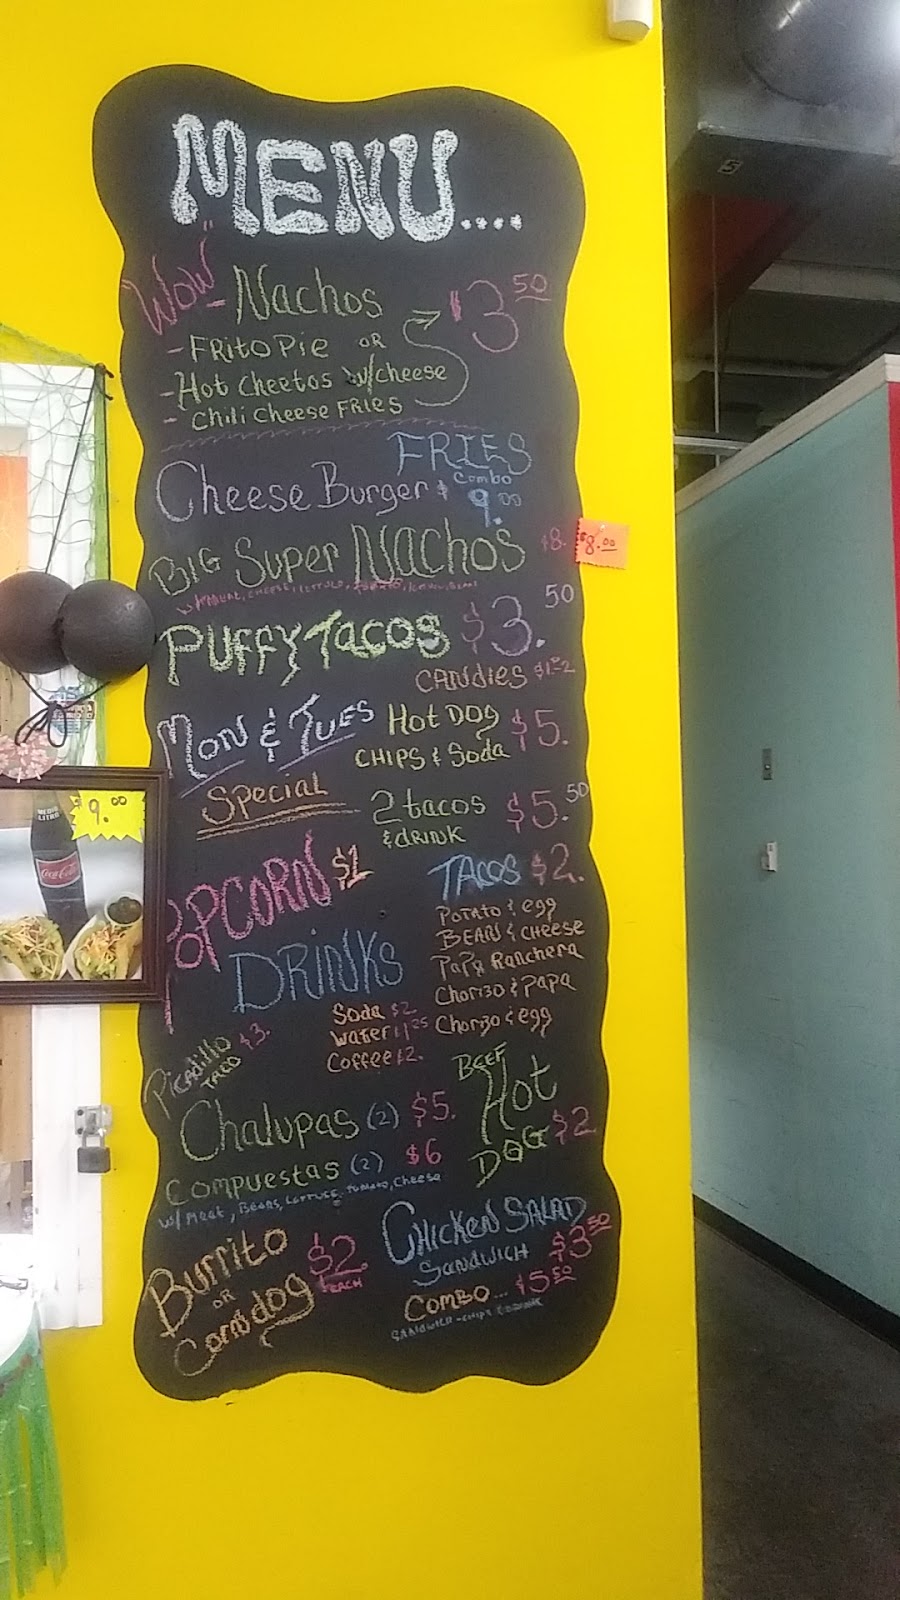 MENU....
WOW Nachos $3.50
- Frito Pie OR
- Hot Cheetos w/cheese
- Chili Cheese Fries
FRIES
Cheese Burger & Combo 9.00
BIG Super Nachos $8. $8.00
Puffy Tacos $3.50
CANDIES
Mon & Tues Hot Dog
CHIPS & Soda $5.
Special 2 tacos
& DRINK $5.50
POPCORN $1
TACOS $2.
Potato & egg
BEAN & CHEESE
Papa Ranchera
Chorizo & papa
Chorizo & egg
DRINKS
Soda $2
Water 1.25
Coffee $2.
Picadillo
TACO $3.
BEEF
Hot
DOG $2
Chalupas (2) $5.
Compuestas (2) $6
w/ Meat, Beans, Lettuce, Tomato, Cheese
Burrito
OR
Corndog
$2.
EACH
CHICKEN SALAD
SANDWICH $3.50
COMBO... $5.50
SANDWICH-CHIPS & DRINK
$9.00
MEDIO
LITRO
Coca-Cola